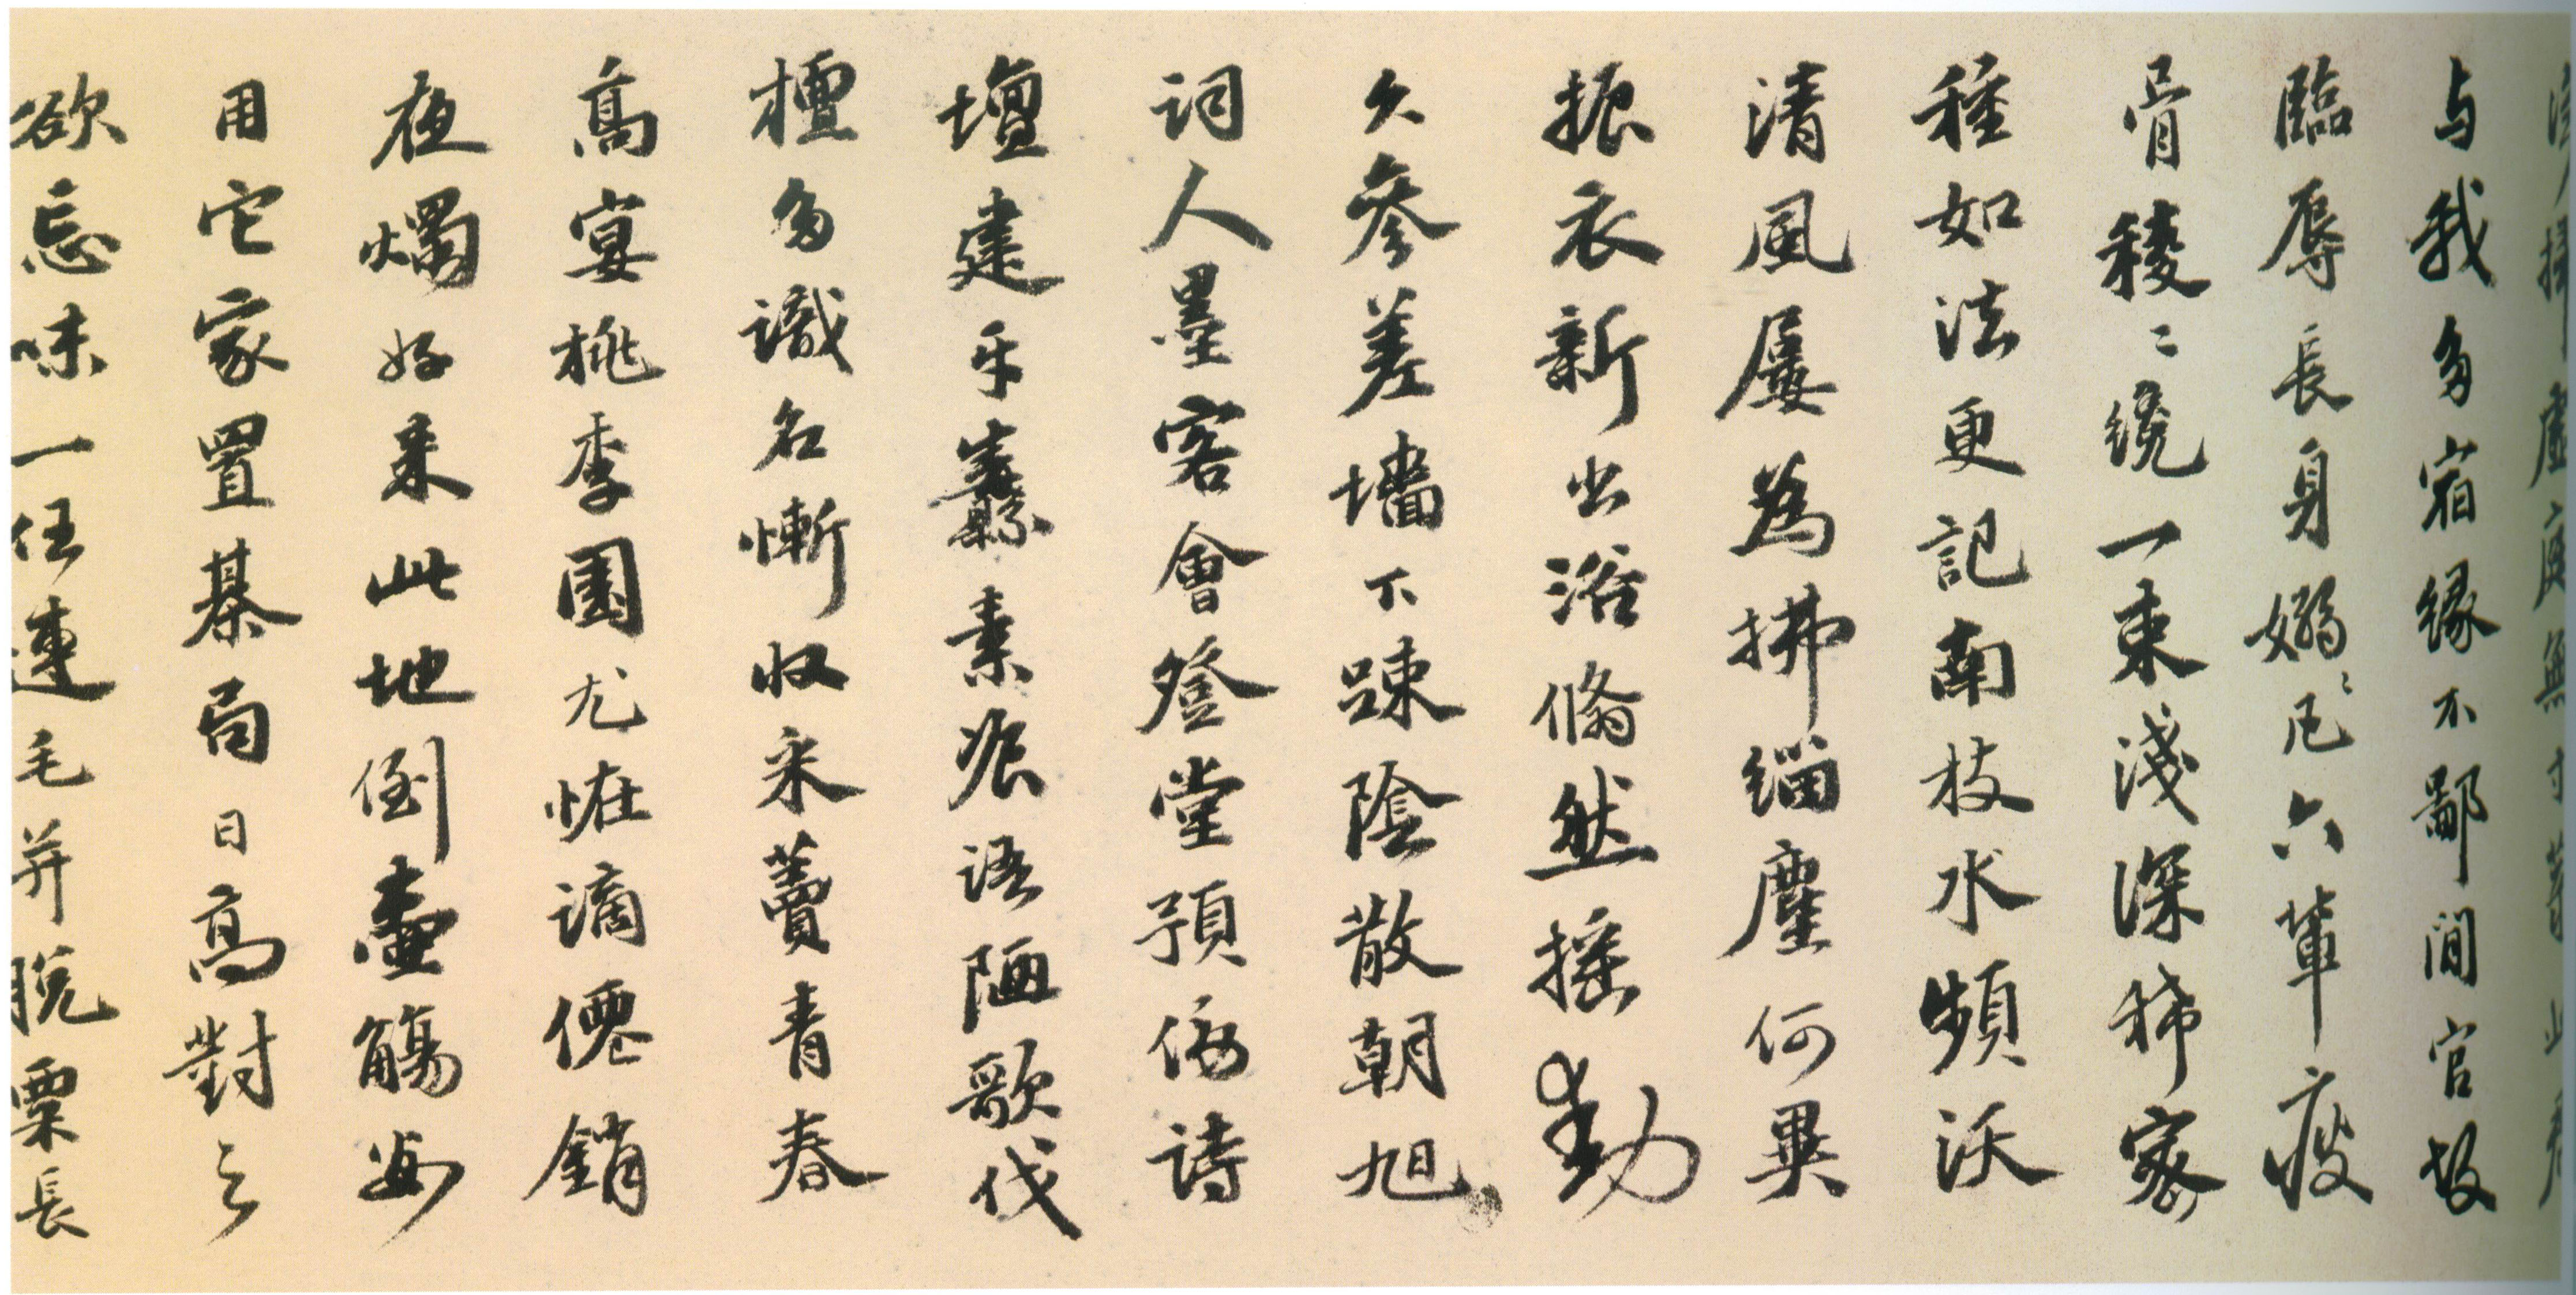 与我多宿緣不鄙閒官故
臨辱長身嫋〻凡六輩瘦
骨稜〻纔一束淺深稀密
種如法更記南枝水頻沃
清風屢為拂緇塵何異
振衣新出浴翛然搖動
久參差墻下踈陰散朝旭
詞人墨客會登堂預傷詩
壇建牙纛素癡語陋歌伐
檀多識名慚收采藚青春
高宴桃李園尤怪謫僊銷
夜燭好来此地倒壺觴安
用它家置棊局日高對之
欲忘味一任連毛并脫粟長